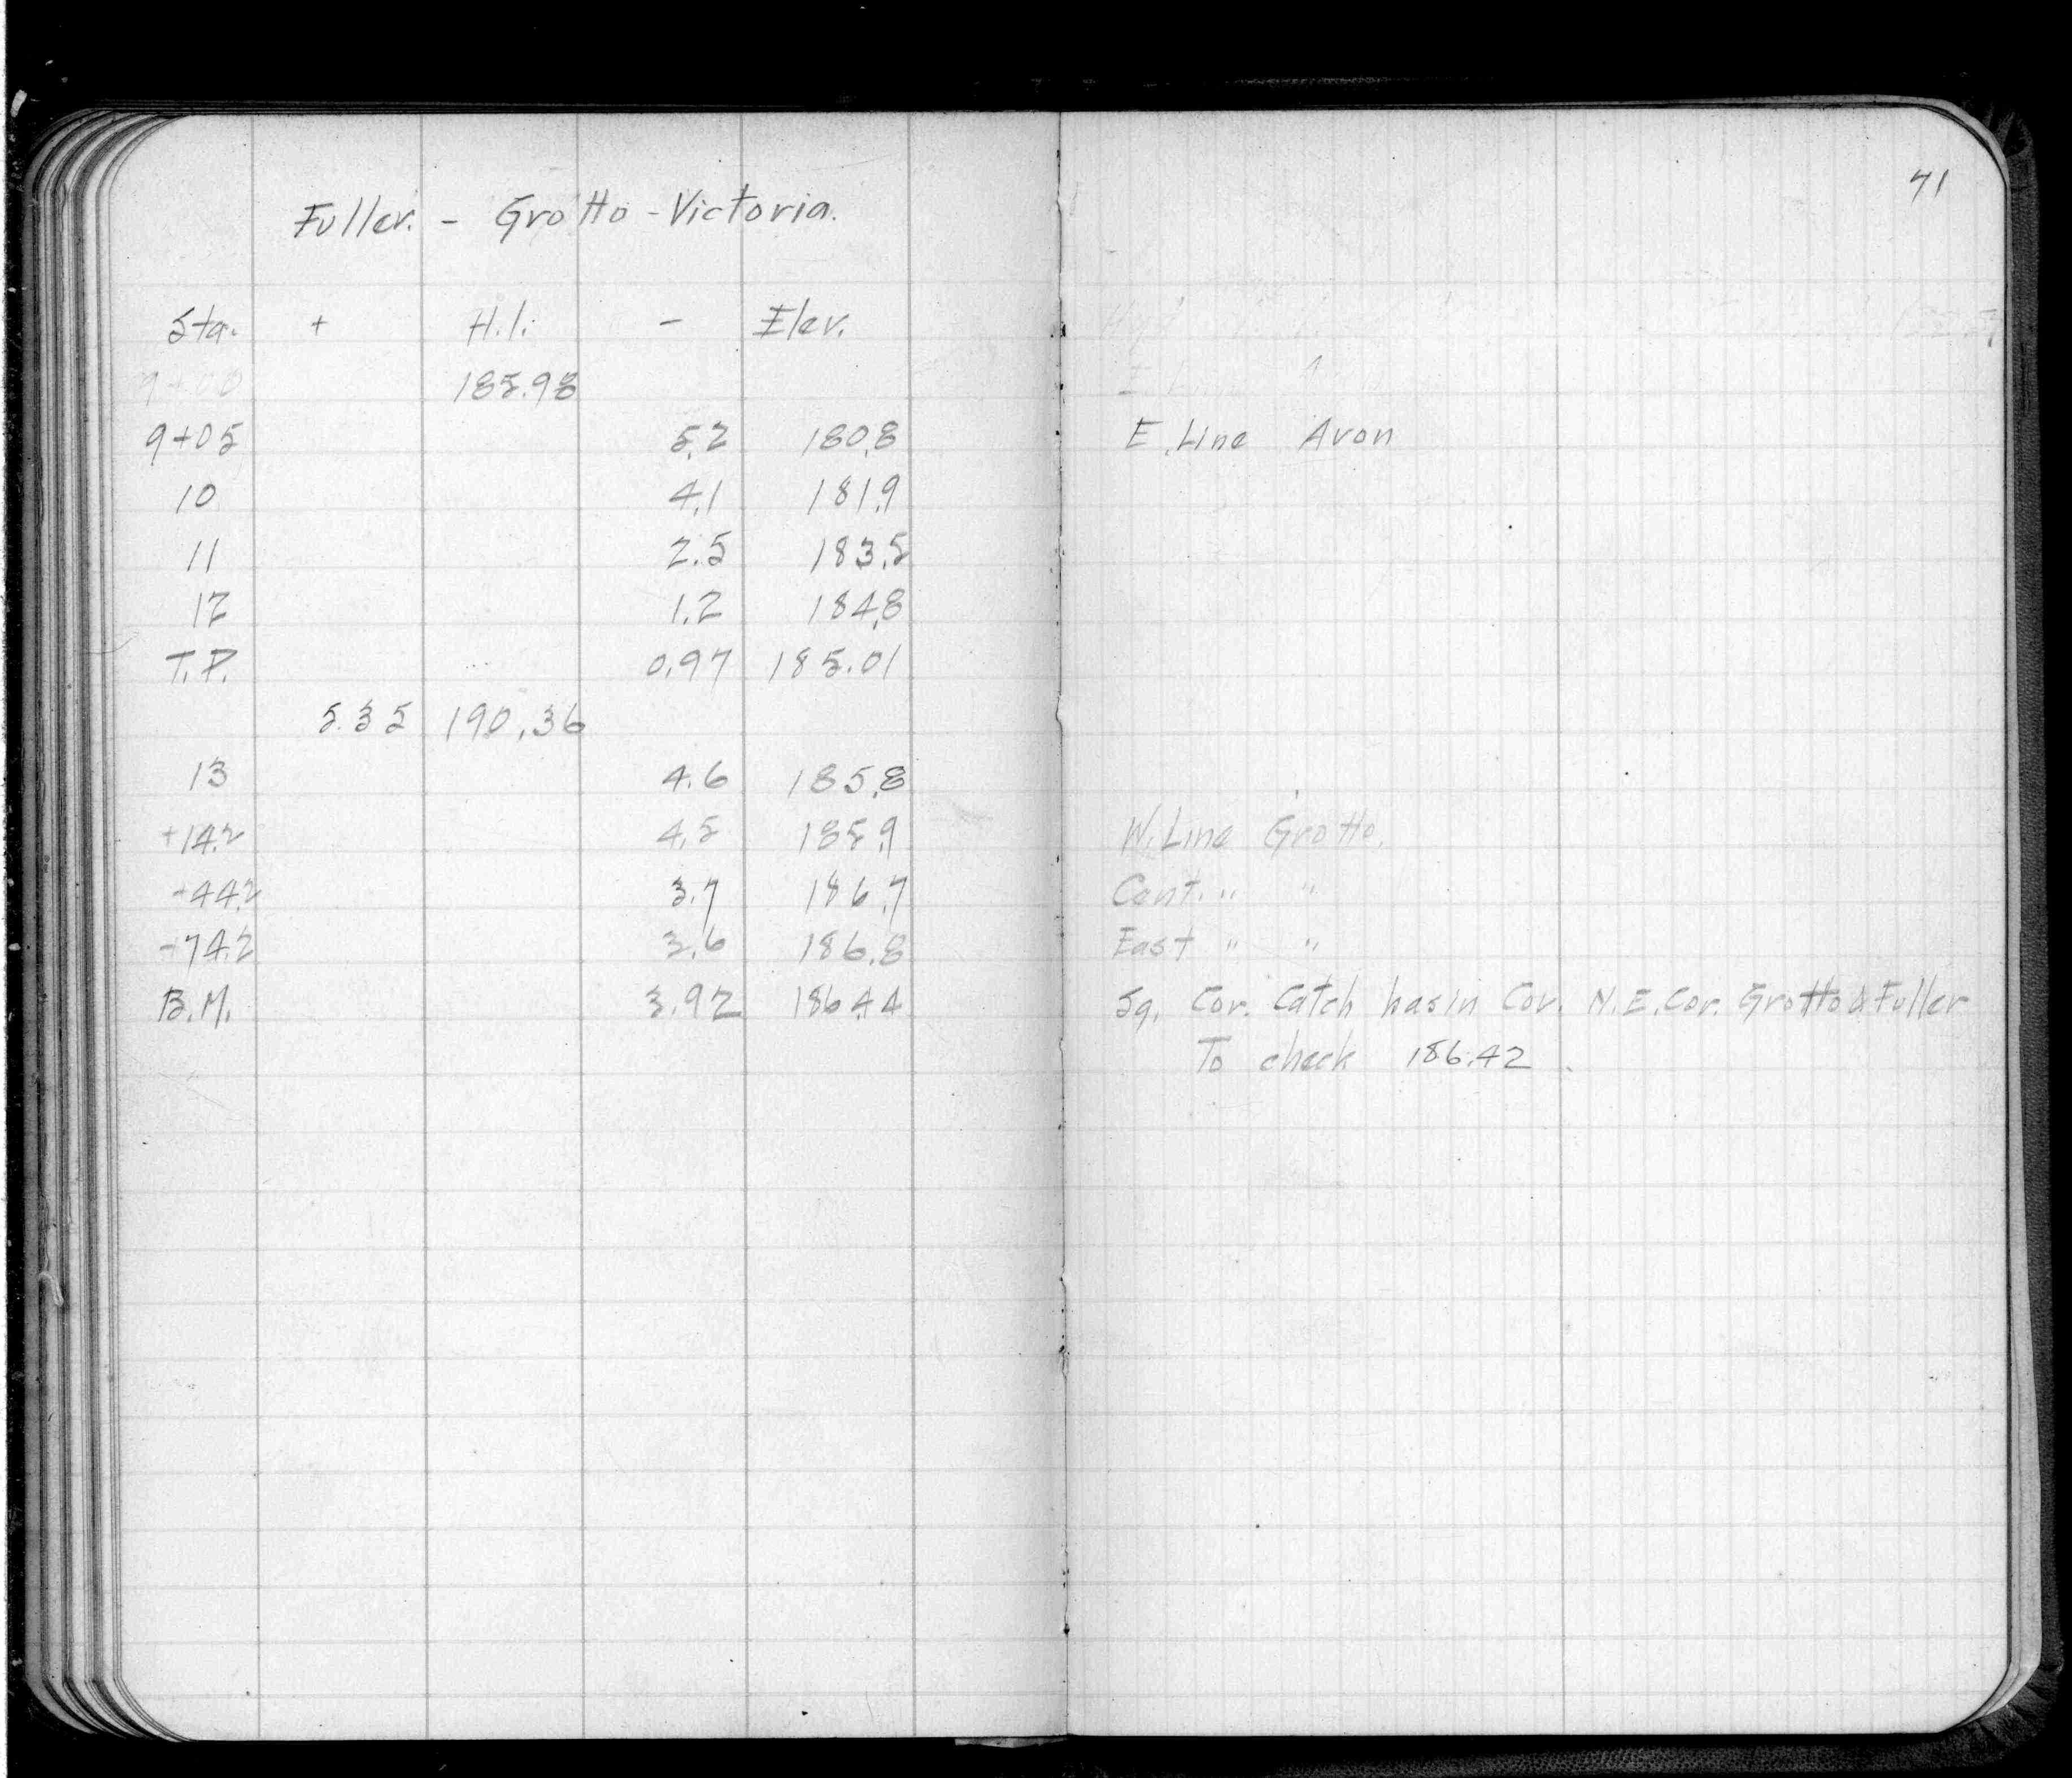 71
Fuller. - Grotto - Victoria.
Sta. + H.I. - Elev.
9+00 185.98
9+05 5.2 180.8 E. Line Avon
10 4.1 181.9
11 2.5 183.5
12 1.2 184.8
T.P. 0.97 185.01
5.35 190.36
13 4.6 185.8
+14.2 4.5 185.9 W. Line Grotto.
+44.2 3.7 186.7 Cent. " "
+74.2 3.6 186.8 East " "
B.M. 3.92 186.44 Sq. Cor. Catch basin Cor. N.E. Cor. Grotto & Fuller
To check 186.42